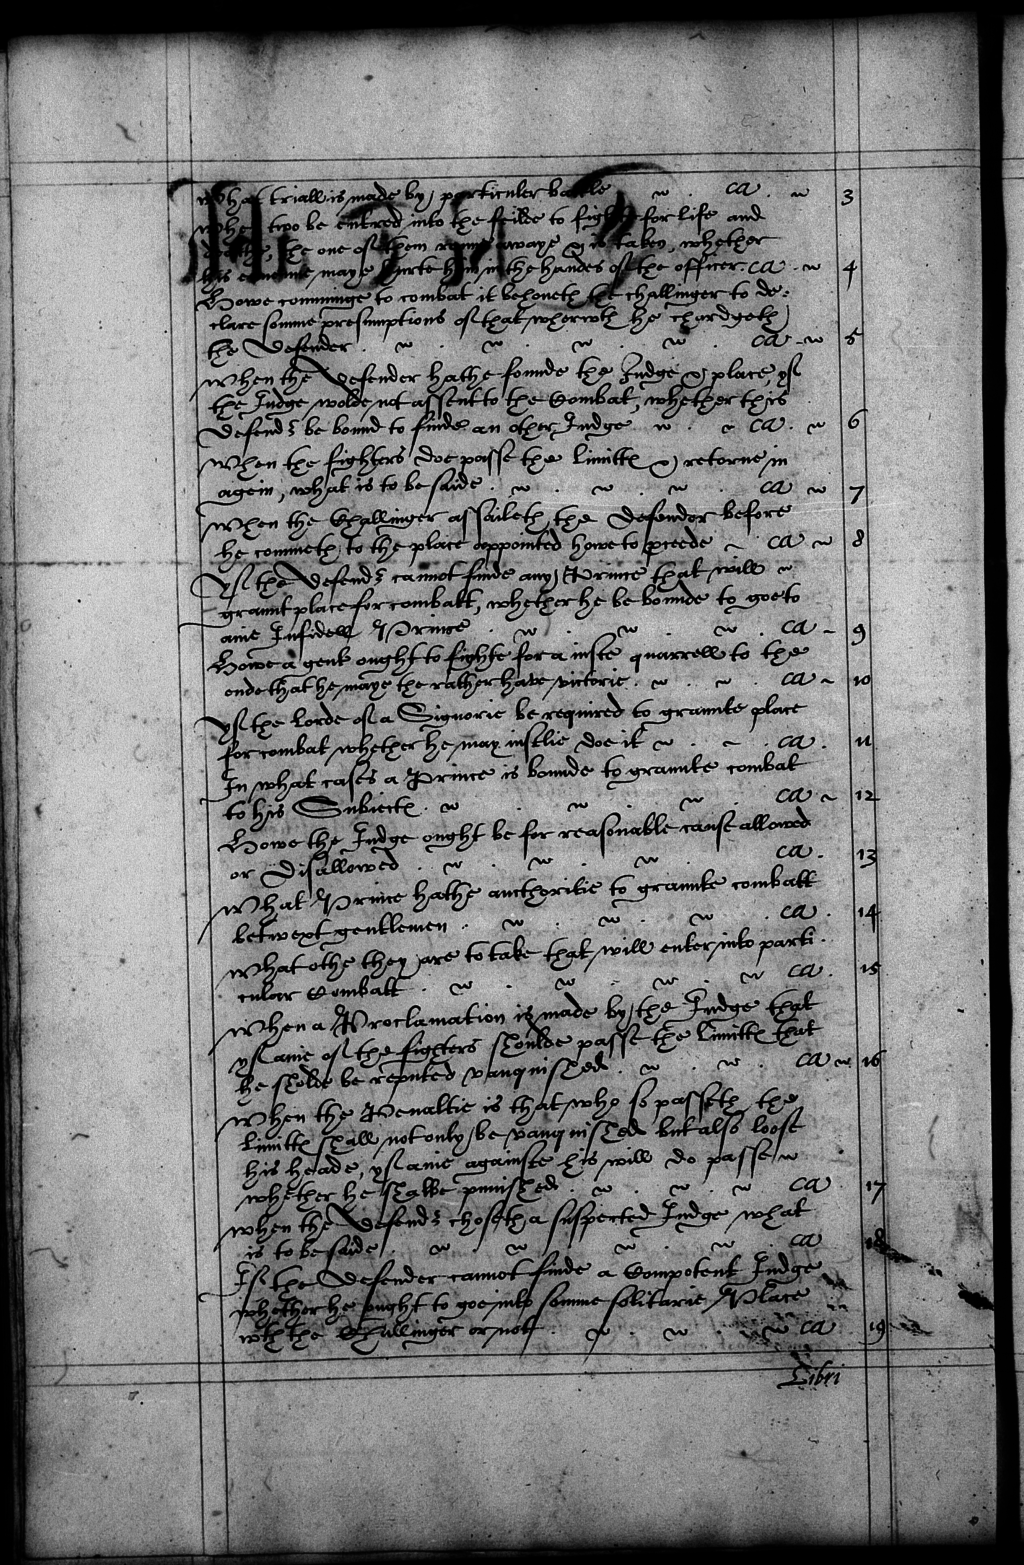 What triall is made by particuler battle ca. 3
When two be entred into the feilde to fight for life and
deathe, the one of them runne awaye & is taken, whether
his enemie maye hurte him in the handes of the officer. ca. 4
Howe comminge to combat it behoueth the challinger to de:
clare somme presumptions of that wherwth he chardgeth
the Defender. ca. 5
When the Defender hathe founde the Judge & place, yf
the Judge wolde not assent to the Combat, whether this
Defendr be bound to finde an other Judge ca. 6
When the fighters doe passe the limitts & retorne in
agein, what is to be saide. ca 7
When the Challinger assaileth the Defendor before
he commeth to the place appointed howe to pceede ca 8
Yf the Defendr cannot finde any Prince that will
graunt place for combatt, whether he be bounde to goe to
anie Infidell Prince. ca 9
Howe a gent ought to fighte for a iuste quarrell to the
ende that he maye the rather have victorie. ca 10
Yf the Lorde of a Signorie be required to graunte place
for combat whether he may iustlie doe it ca. 11
In what cases a Prince is bounde to graunte combat
to his Subiects. ca 12
Howe the Judge ought be for reasonable cause allowed
or Disallowed. ca. 13
What Prince hathe aucthoritie to graunte combatt
betwext gentlemen. ca. 14
What othe they are to take that will enter into parti:
culer Combatt. ca. 15
When a Proclamation is made by the Judge that
yf anie of the fighters shoulde passe the limitts that
he sholde be reputed vanquished. ca 16
When the Penaltie is that who so passeth the
limitts shall not only be vanquished but also loose
his heade, yf anie againste his will do passe
whether he shalbe punished. ca. 17
When the Defendr choseth a suspected Judge what
is to be saide. ca 18
If the Defender cannot finde a Competent Judge
whether he ought to goe into somme solitarie Place
wth the Challinger or not. ca 19
Libri